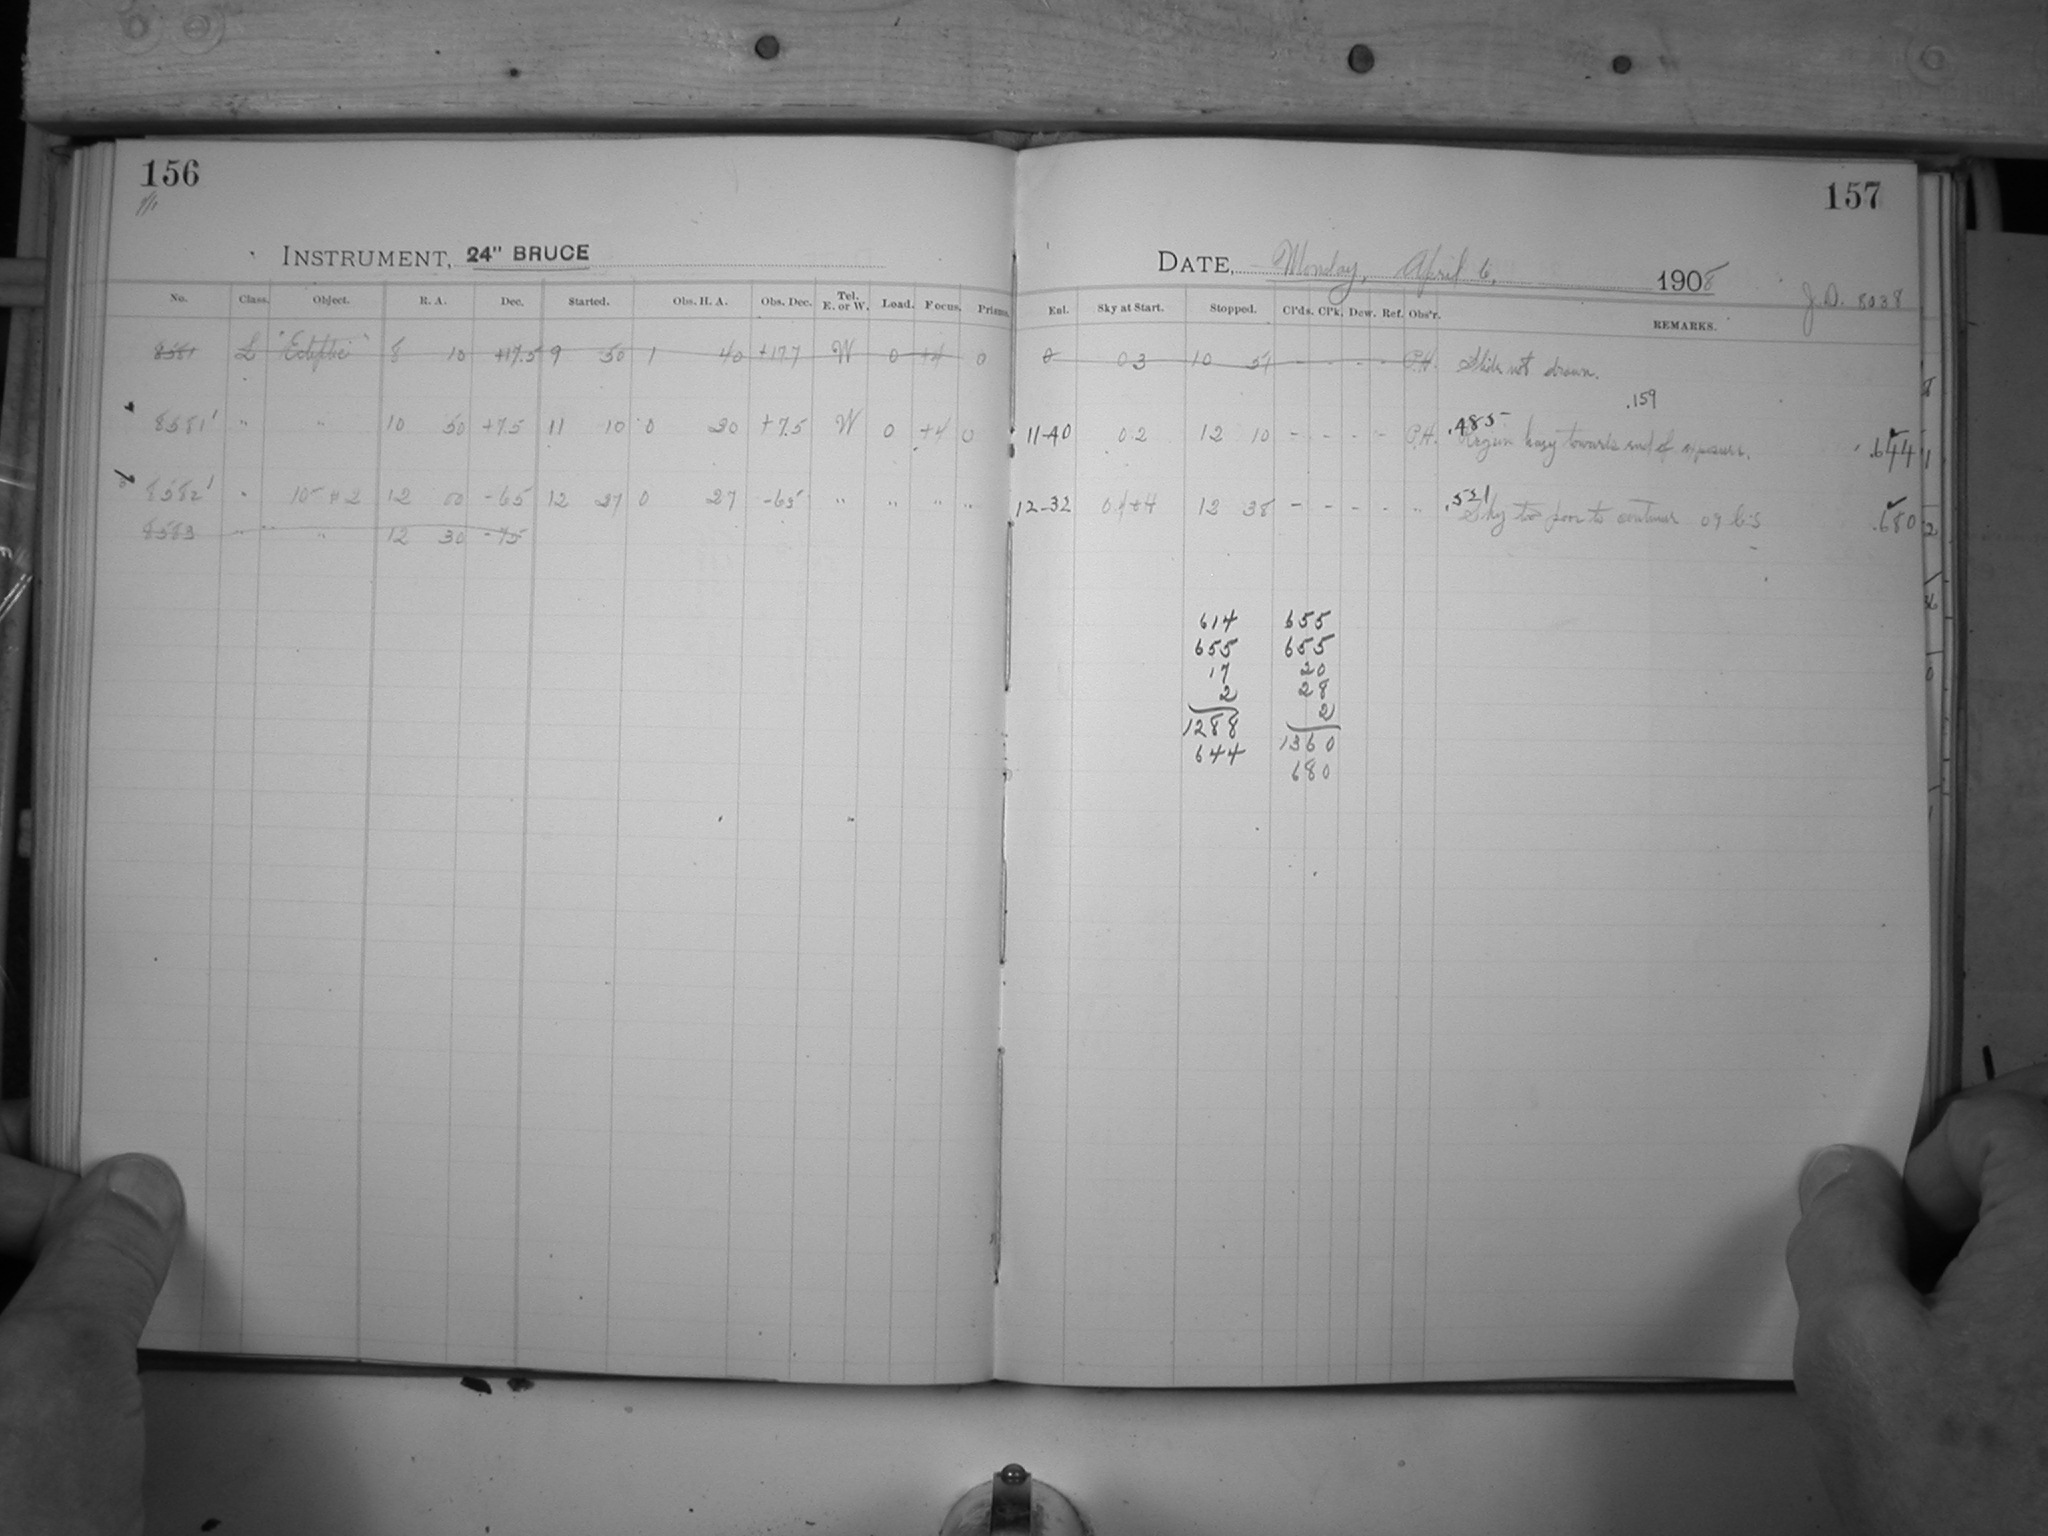 156
INSTRUMENT, 24" BRUCE
No. Class. Object. R. A. Dec. Started. Obs. H. A. Obs. Dec. Tel. E. or W. Load. Focus. Prisms.
8581 L "Ecliptic" 8 10 +17.5 9 50 1 40 +17.7 W 0 +4 0
8581' " " 10 50 +7.5 11 10 0 20 +7.5 W 0 +4 0
8582' " 10 12 00 -65 12 27 0 27 -65 " " " "
8583 " " 12 30 -75
157
DATE, Monday, April 6, 1908
J.D. 8038
Exl. Sky at Start. Stopped. Cl'ds. Cl'k. Dew. Ref. Obs'r. REMARKS.
0 03 10 51 - - - - P.H. Slide not drawn.
.159
11-40 02 12 10 - - - - P.H. .485 hazy towards end of exposure. .644
12-32 12 38 - - - - " .521 Sky too poor to continue .680
614 655
655 655
17 20
2 28
1288 2
644 1360
680